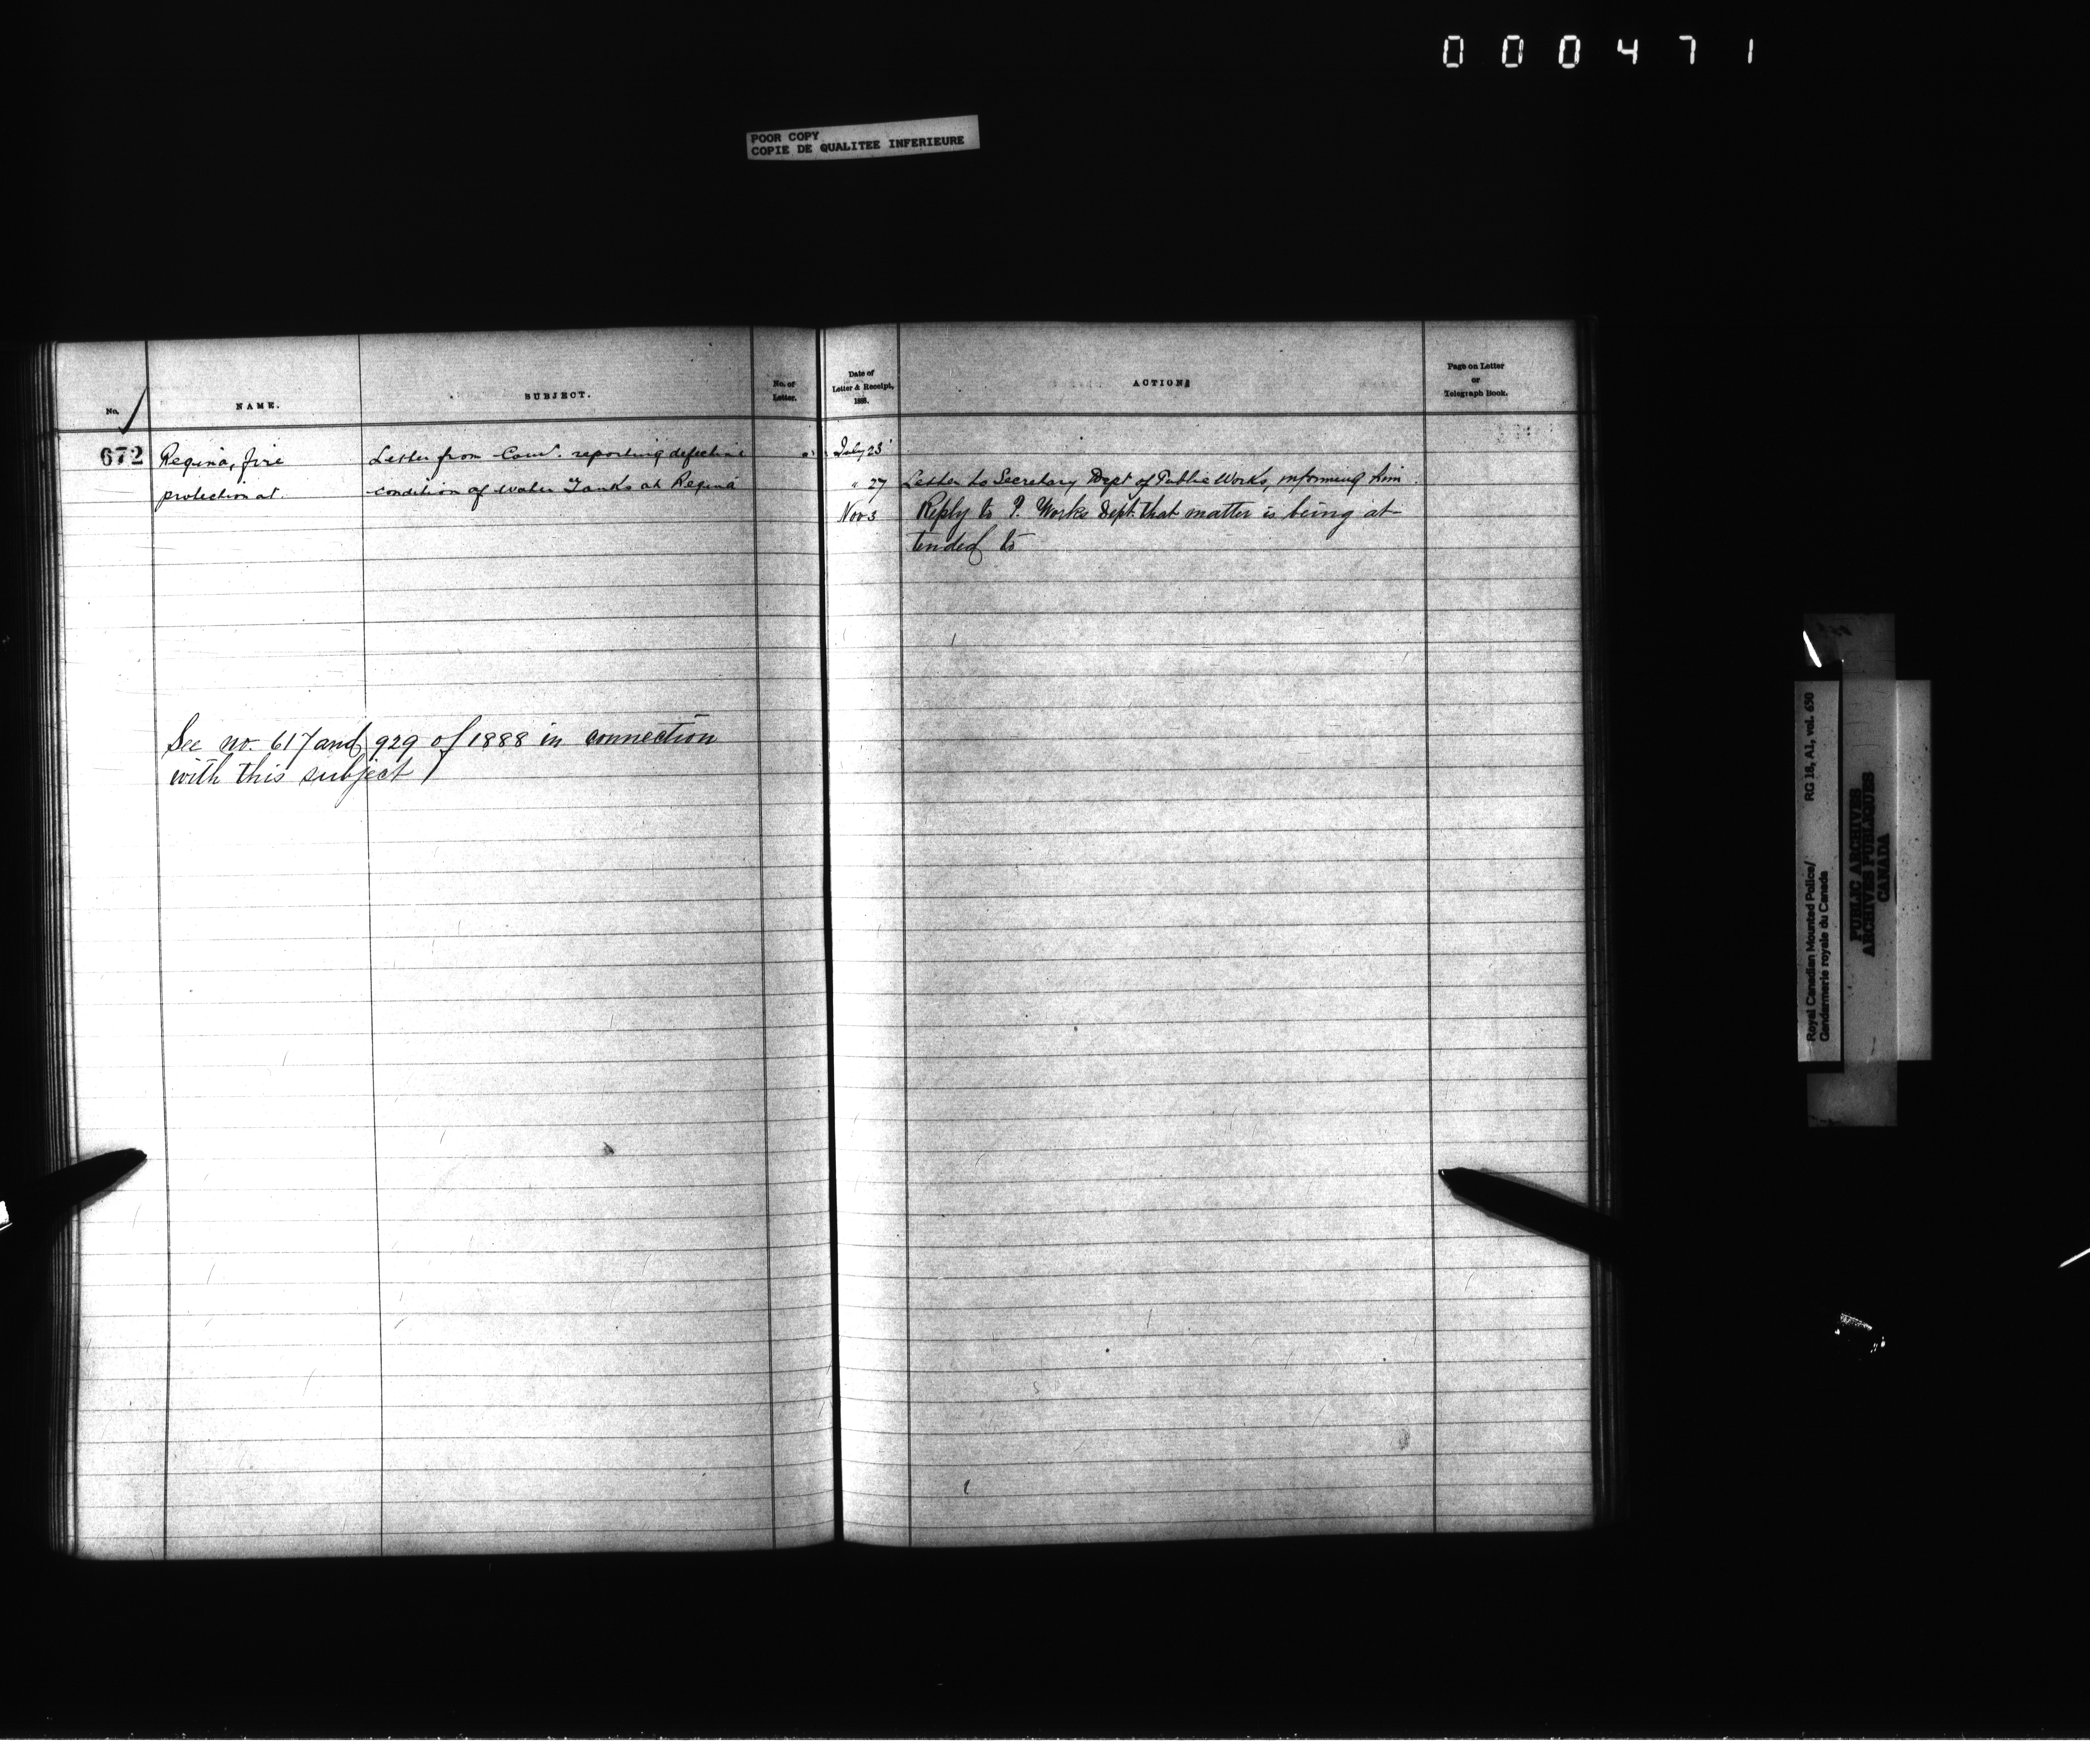 000471
POOR COPY
COPIE DE QUALITEE INFERIEURE
No.
NAME.
SUBJECT.
No. of
Letter.
Date of
Letter & Receipt,
1888.
ACTION
Page on Letter
or
Telegraph Book.
672 Regina, fire Letter from Com'. reporting defective July 23
protection at. condition of water Tanks at Regina " 27 Letter to Secretary Dept of Public Works, informing him.
Nov 3 Reply to P. Works Dept. that matter is being at-
tended to
See no. 617 and 929 of 1888 in connection
with this subject
Royal Canadian Mounted Police/ RG 18, A1, vol. 650
Gendarmerie royale du Canada
PUBLIC ARCHIVES
ARCHIVES PUBLIQUES
CANADA